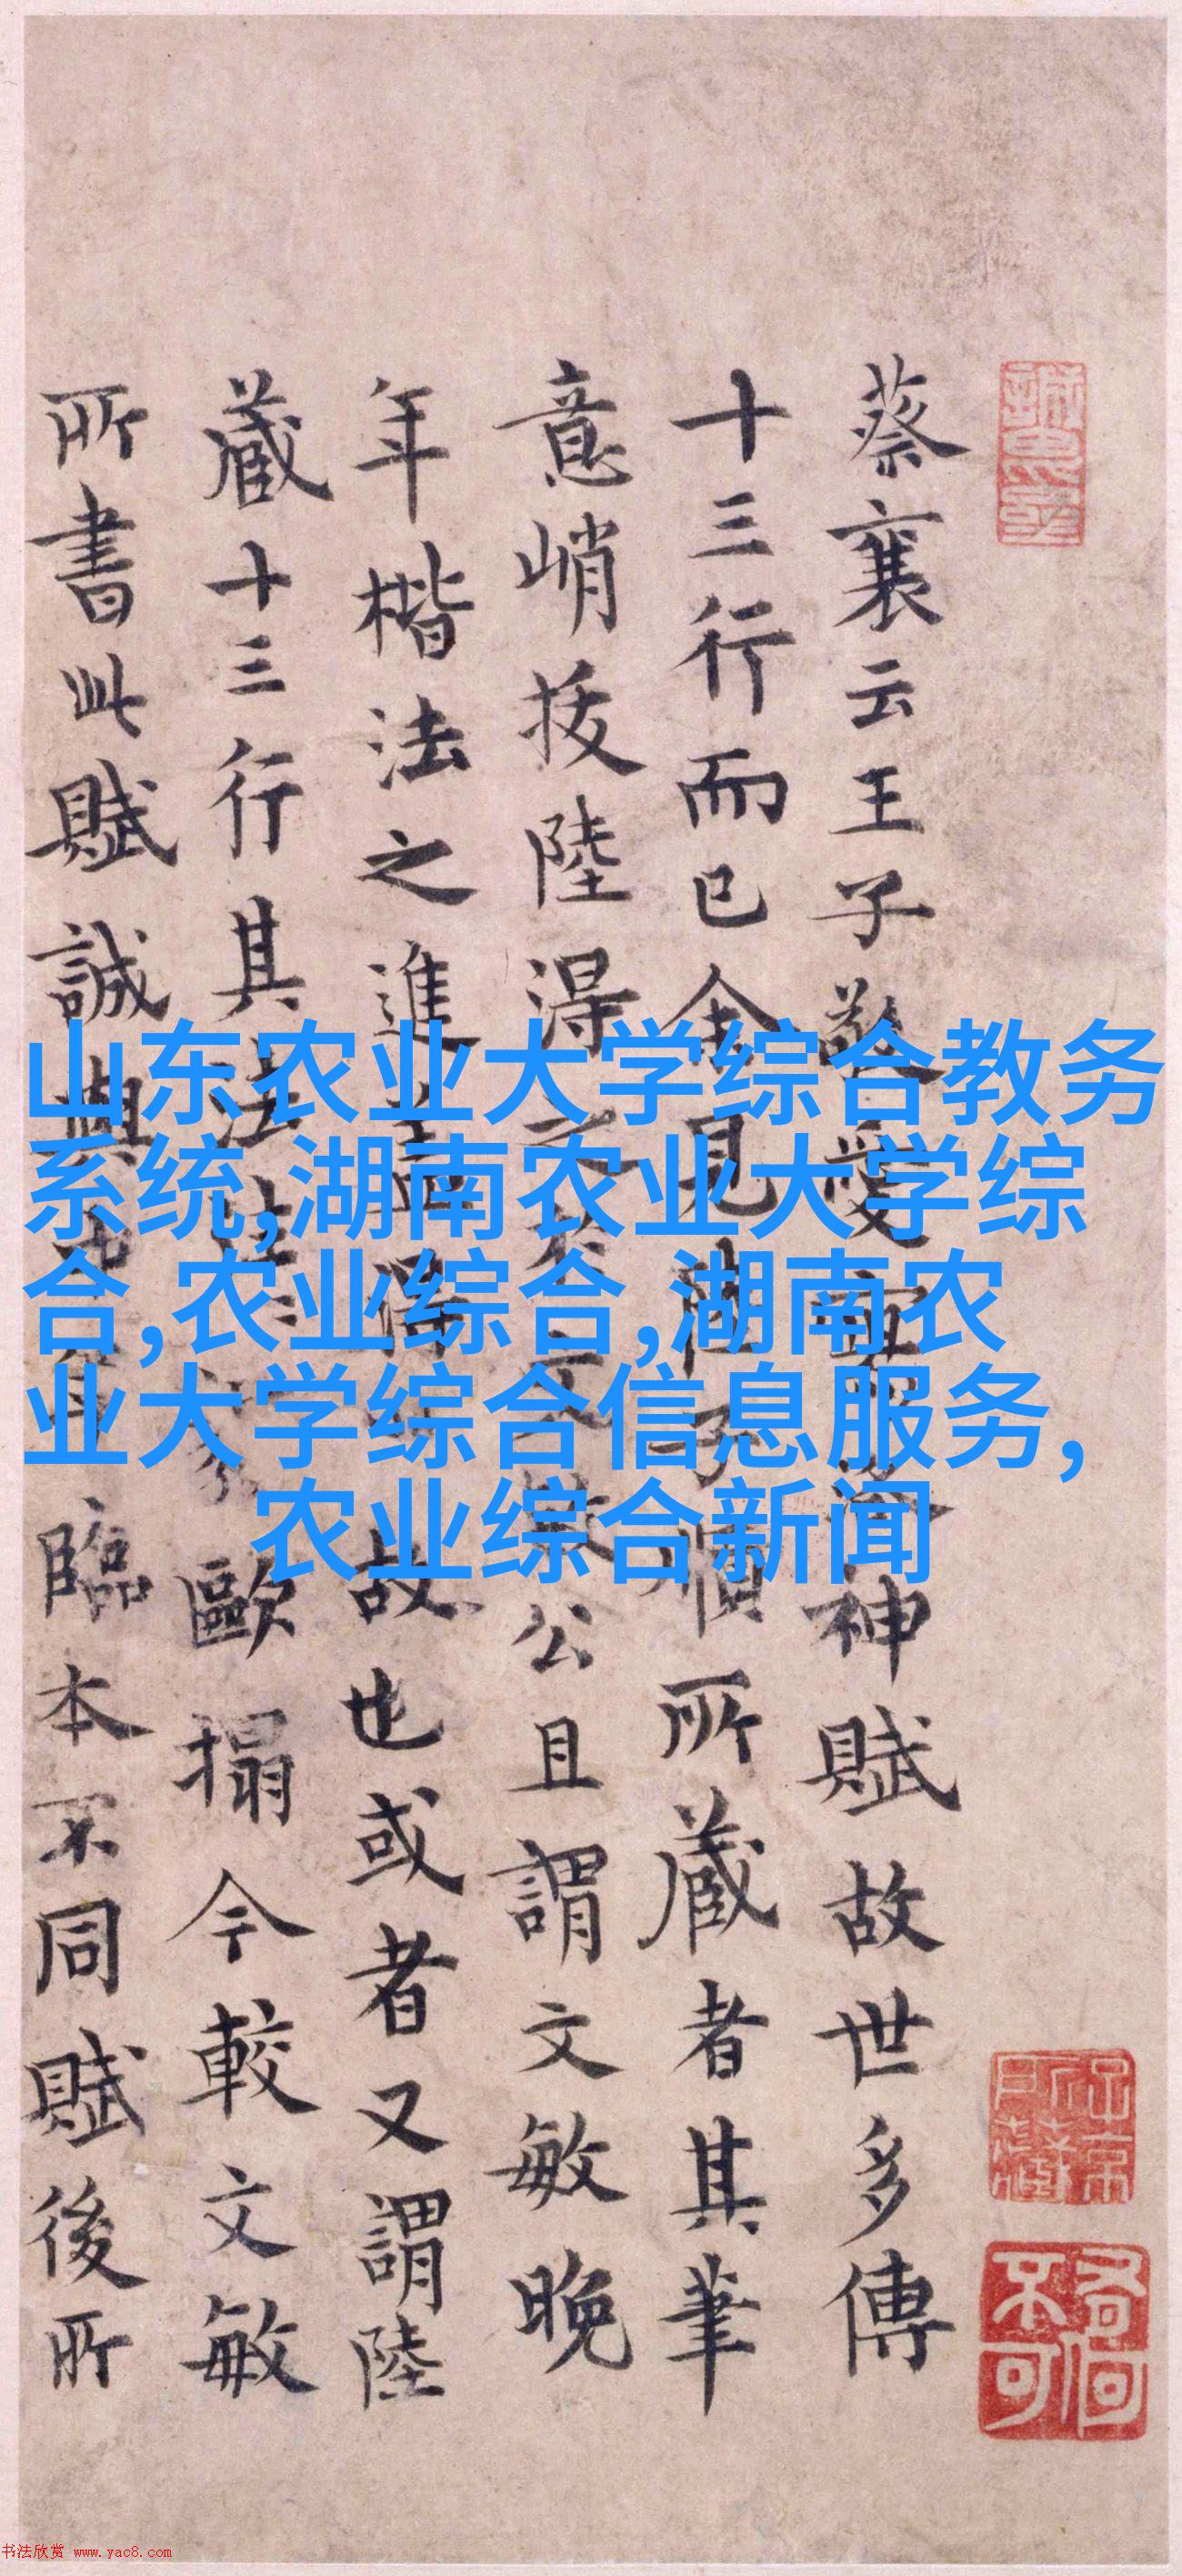 蔡襄云王子敬愛寫洛神賦故世多傳
十三行而已余見陸子順所藏者其筆
意峭拔陸得之於文敏公且謂文敏晚
年楷法之進益得 故也或者又謂陸
藏十三行其法 歐搨今較文敏
所書此賦誠與 自 臨本不同賦後所
山东农业大学综合教务
系统,湖南农业大学综
合,农业综合,湖南农
业大学综合信息服务,
农业综合新闻
书法欣赏 www.yac8.com